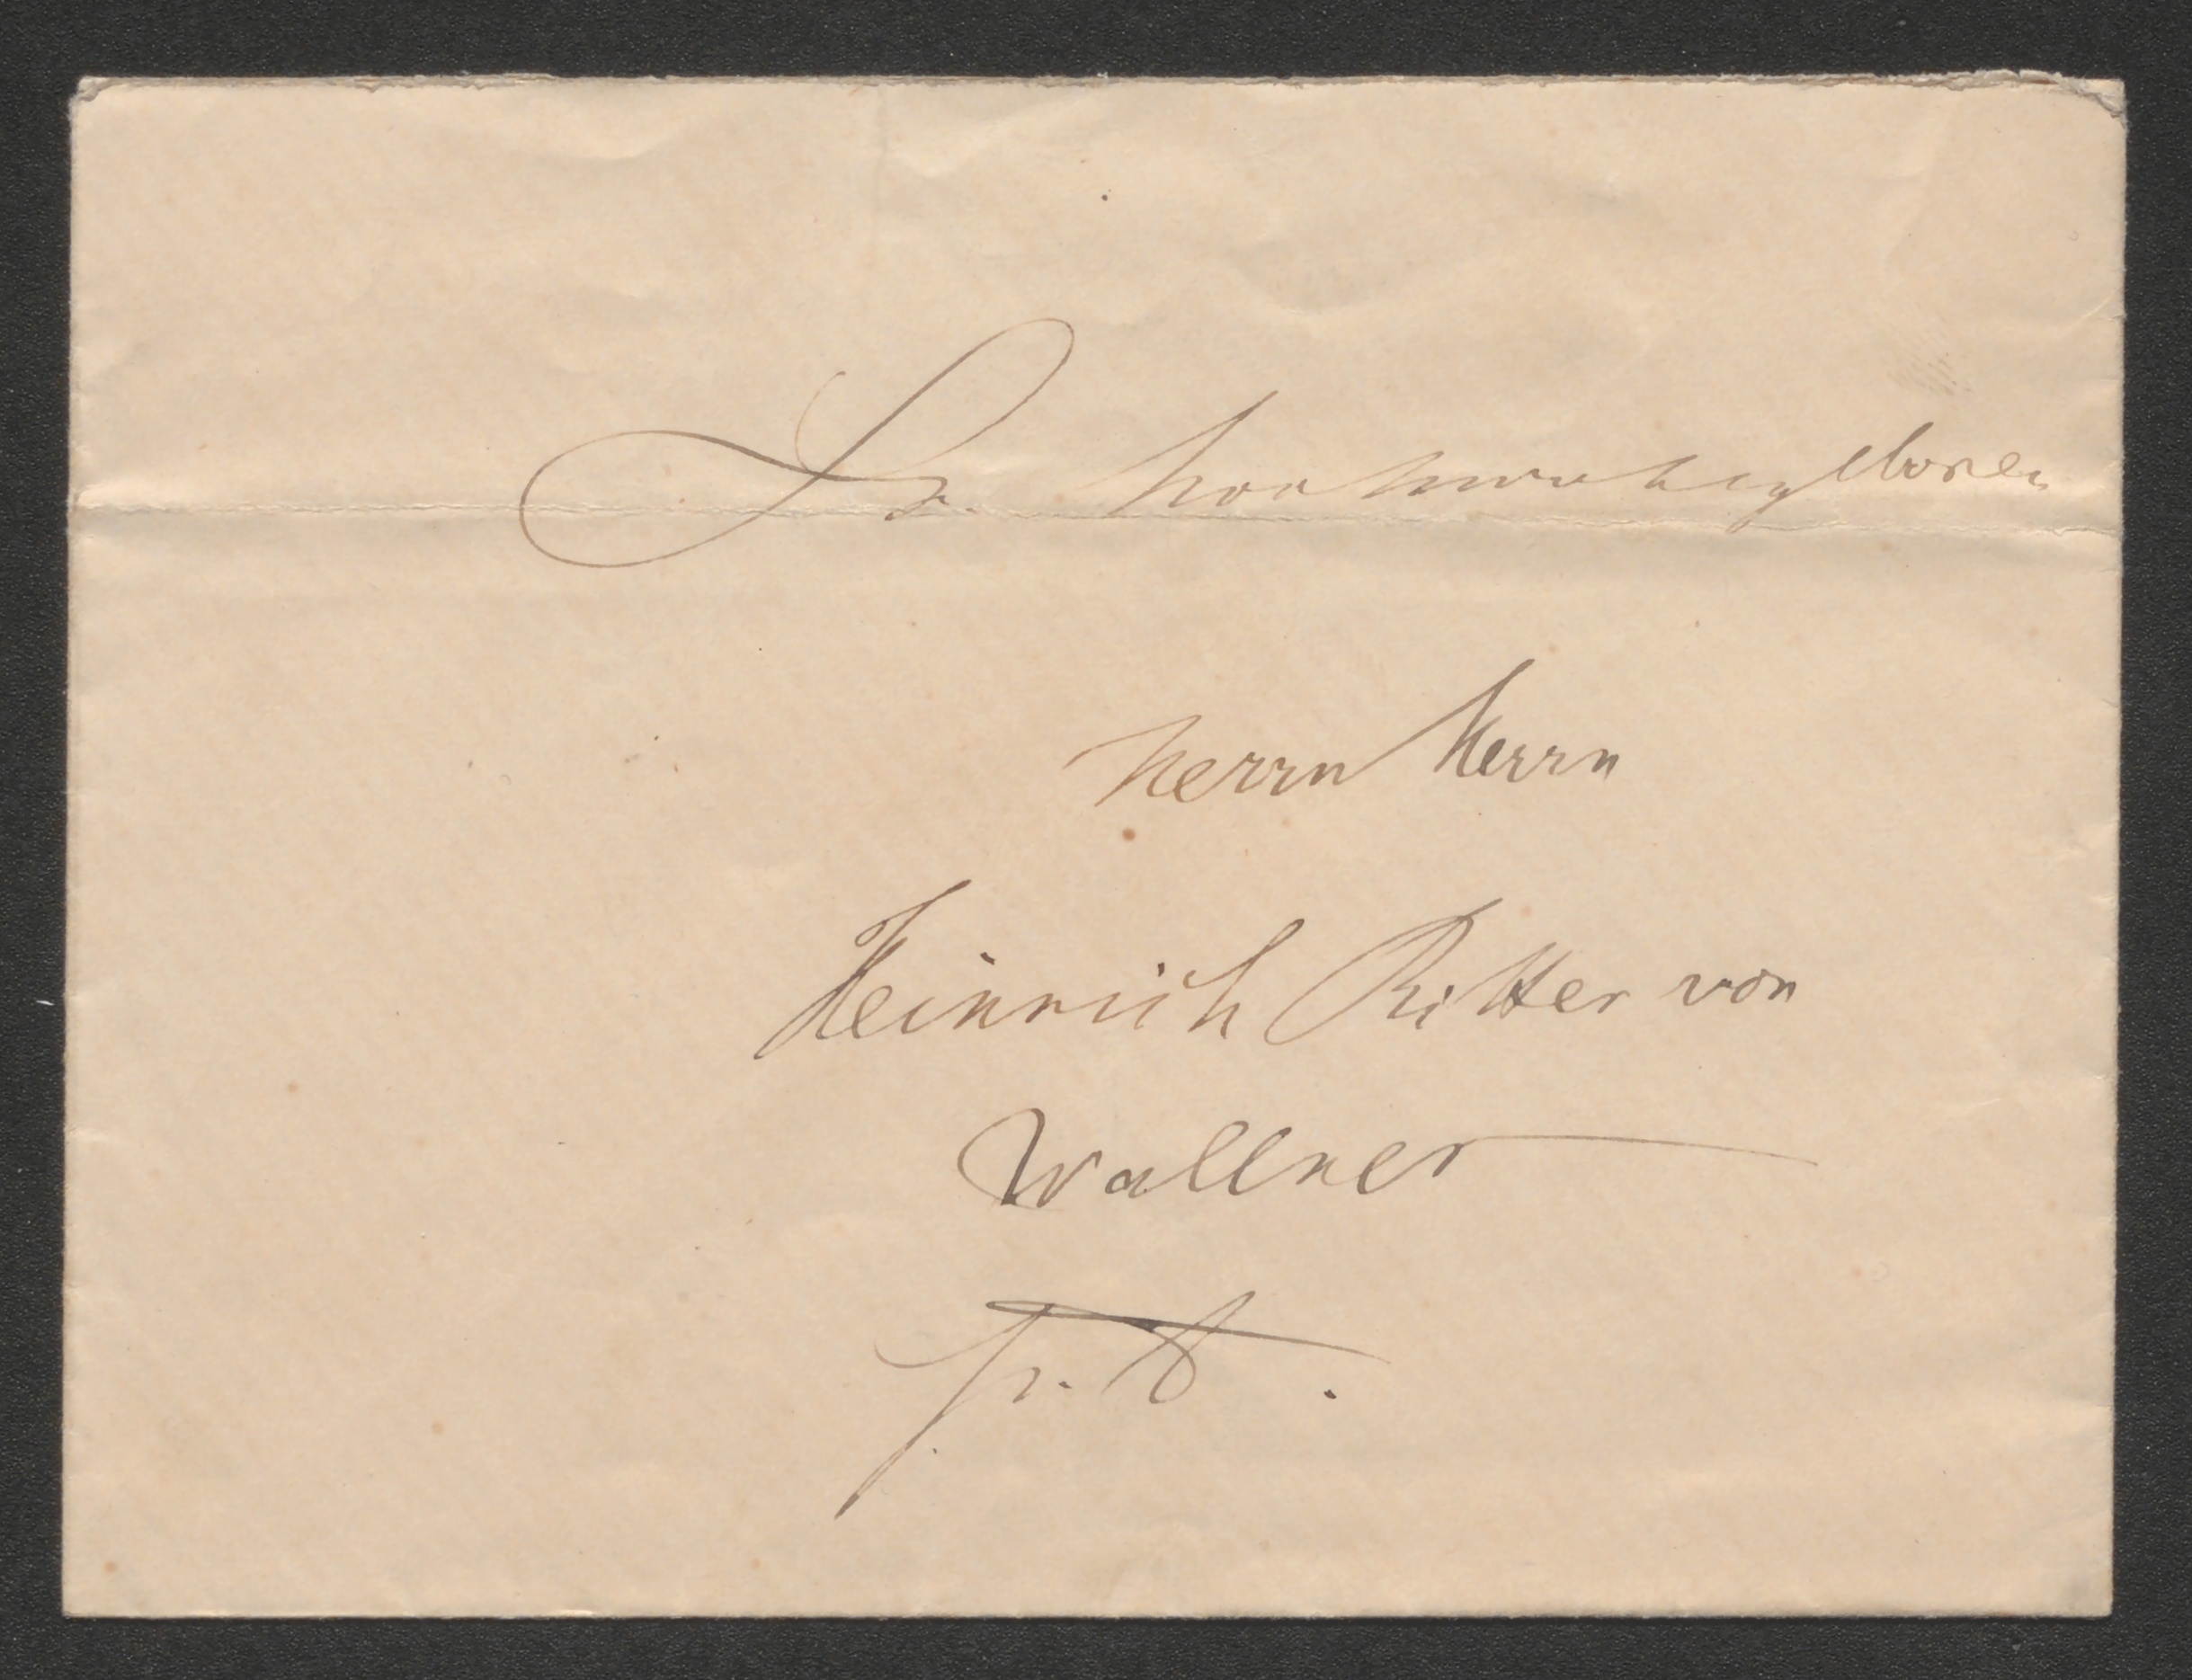 Sr. hochwohlgeboren
Herrn Herrn
Heinrich Ritter von
Wallner
p. t.